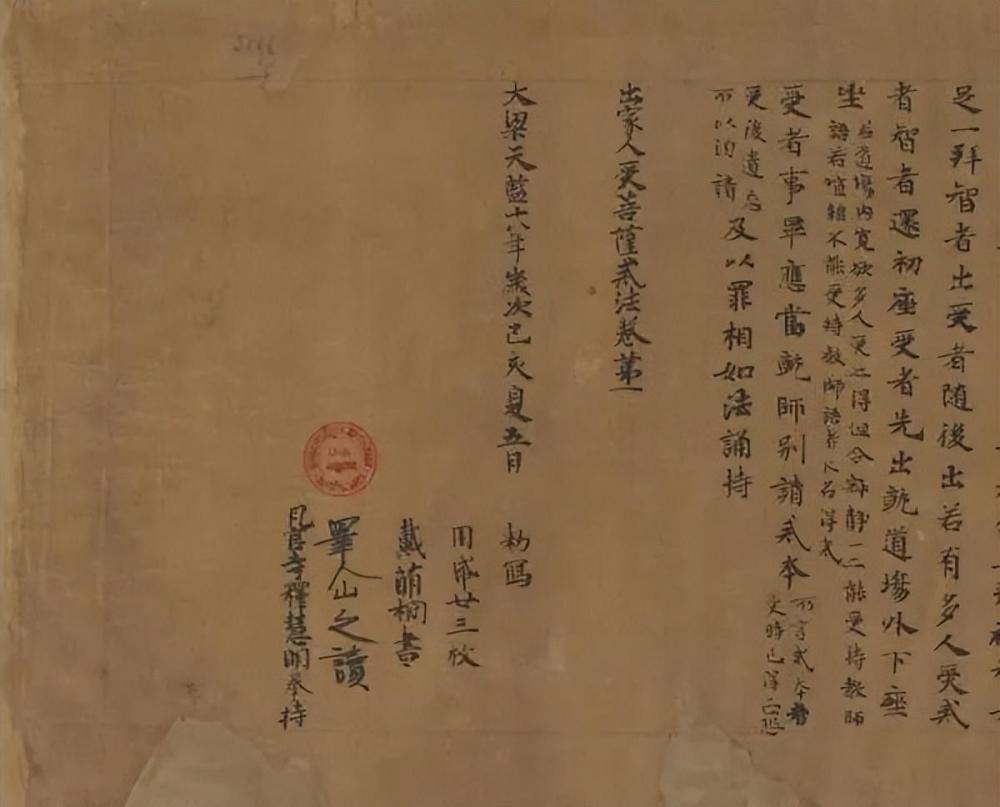 足一拜智者出受者随後出若有多人受戒
者智者還初座受者先出就道場外下座
坐
若道場内寬欲多人受之得但令寂靜一二能受持教師
語若喧雜不能受持教師語者不名得戒
受者事畢應當就師别請戒本
可言戒本者
受時已得
受後遺忘
可以請
及以罪相如法誦持
出家人受菩薩戒法卷第一
大梁天藍十八年歲次己亥夏五月 勑寫
用紙廿三枚
戴萌桐書
畢山之讀
瓦官寺釋慧明奉持